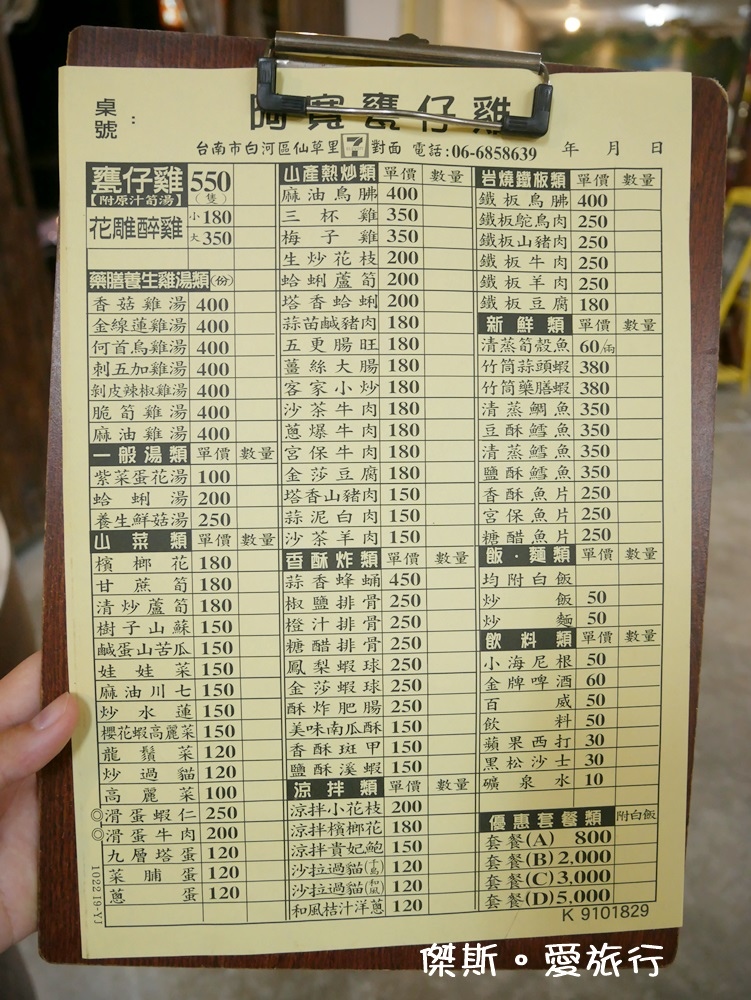 桌號：
阿寬甕仔雞
台南市白河區仙草里 7 ELEVEN 對面 電話:06-6858639 年 月 日
甕仔雞【附原汁筍湯】 550(隻)
花雕醉雞 小180 大350
藥膳養生雞湯類(份)
香菇雞湯 400
金線蓮雞湯 400
何首烏雞湯 400
刺五加雞湯 400
剝皮辣椒雞湯 400
脆筍雞湯 400
麻油雞湯 400
一般湯類 單價 數量
紫菜蛋花湯 100
蛤蜊湯 200
養生鮮菇湯 250
山菜類 單價 數量
檳榔花 180
甘蔗筍 180
清炒蘆筍 180
樹子山蘇 150
鹹蛋山苦瓜 150
娃娃菜 150
麻油川七 150
炒水蓮 150
櫻花蝦高麗菜 150
龍鬚菜 120
炒過貓 120
高麗菜 100
◎滑蛋蝦仁 250
◎滑蛋牛肉 200
九層塔蛋 120
菜脯蛋 120
蔥蛋 120
1022 19-YJ
山產熱炒類 單價 數量
麻油鳥胇 400
三杯雞 350
梅子雞 350
生炒花枝 200
蛤蜊蘆筍 200
塔香蛤蜊 200
蒜苗鹹豬肉 180
五更腸旺 180
薑絲大腸 180
客家小炒 180
沙茶牛肉 180
蔥爆牛肉 180
宮保牛肉 180
金莎豆腐 180
塔香山豬肉 150
蒜泥白肉 150
沙茶羊肉 150
香酥炸類 單價 數量
蒜香蜂蛹 450
椒鹽排骨 250
橙汁排骨 250
糖醋排骨 250
鳳梨蝦球 250
金莎蝦球 250
酥炸肥腸 250
美味南瓜酥 150
香酥斑甲 150
鹽酥溪蝦 150
涼拌類 單價 數量
涼拌小花枝 200
涼拌檳榔花 180
涼拌貴妃鮑 150
沙拉過貓(千島) 120
沙拉過貓(和風) 120
和風桔汁洋蔥 120
岩燒鐵板類 單價 數量
鐵板鳥胇 400
鐵板鴕鳥肉 250
鐵板山豬肉 250
鐵板牛肉 250
鐵板羊肉 250
鐵板豆腐 180
新鮮類 單價 數量
清蒸筍殼魚 60/兩
竹筒蒜頭蝦 380
竹筒藥膳蝦 380
清蒸鯛魚 350
豆酥鱈魚 350
清蒸鱈魚 350
鹽酥鱈魚 350
香酥魚片 250
宮保魚片 250
糖醋魚片 250
飯．麵類 單價 數量
均附白飯
炒飯 50
炒麵 50
飲料類 單價 數量
小海尼根 50
金牌啤酒 60
百威 50
飲料 50
蘋果西打 30
黑松沙士 30
礦泉水 10
優惠套餐類 附白飯
套餐(A) 800
套餐(B) 2,000
套餐(C) 3,000
套餐(D) 5,000
K 9101829
傑斯。愛旅行